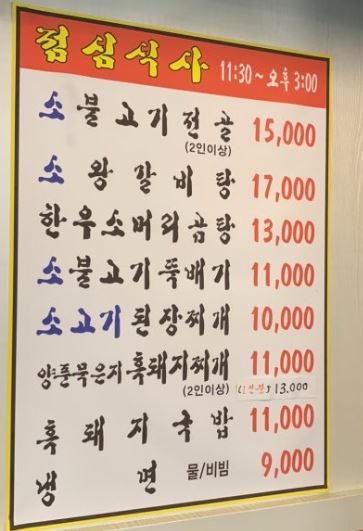 점심식사 11:30~오후 3:00
소불고기전골 15,000
(2인이상)
소왕갈비탕 17,000
한우소머리곰탕 13,000
소불고기뚝배기 11,000
소고기된장찌개 10,000
양푼묵은지흑돼지찌개 11,000
(2인이상) 13.000
흑돼지국밥 11,000
냉면 물/비빔 9,000